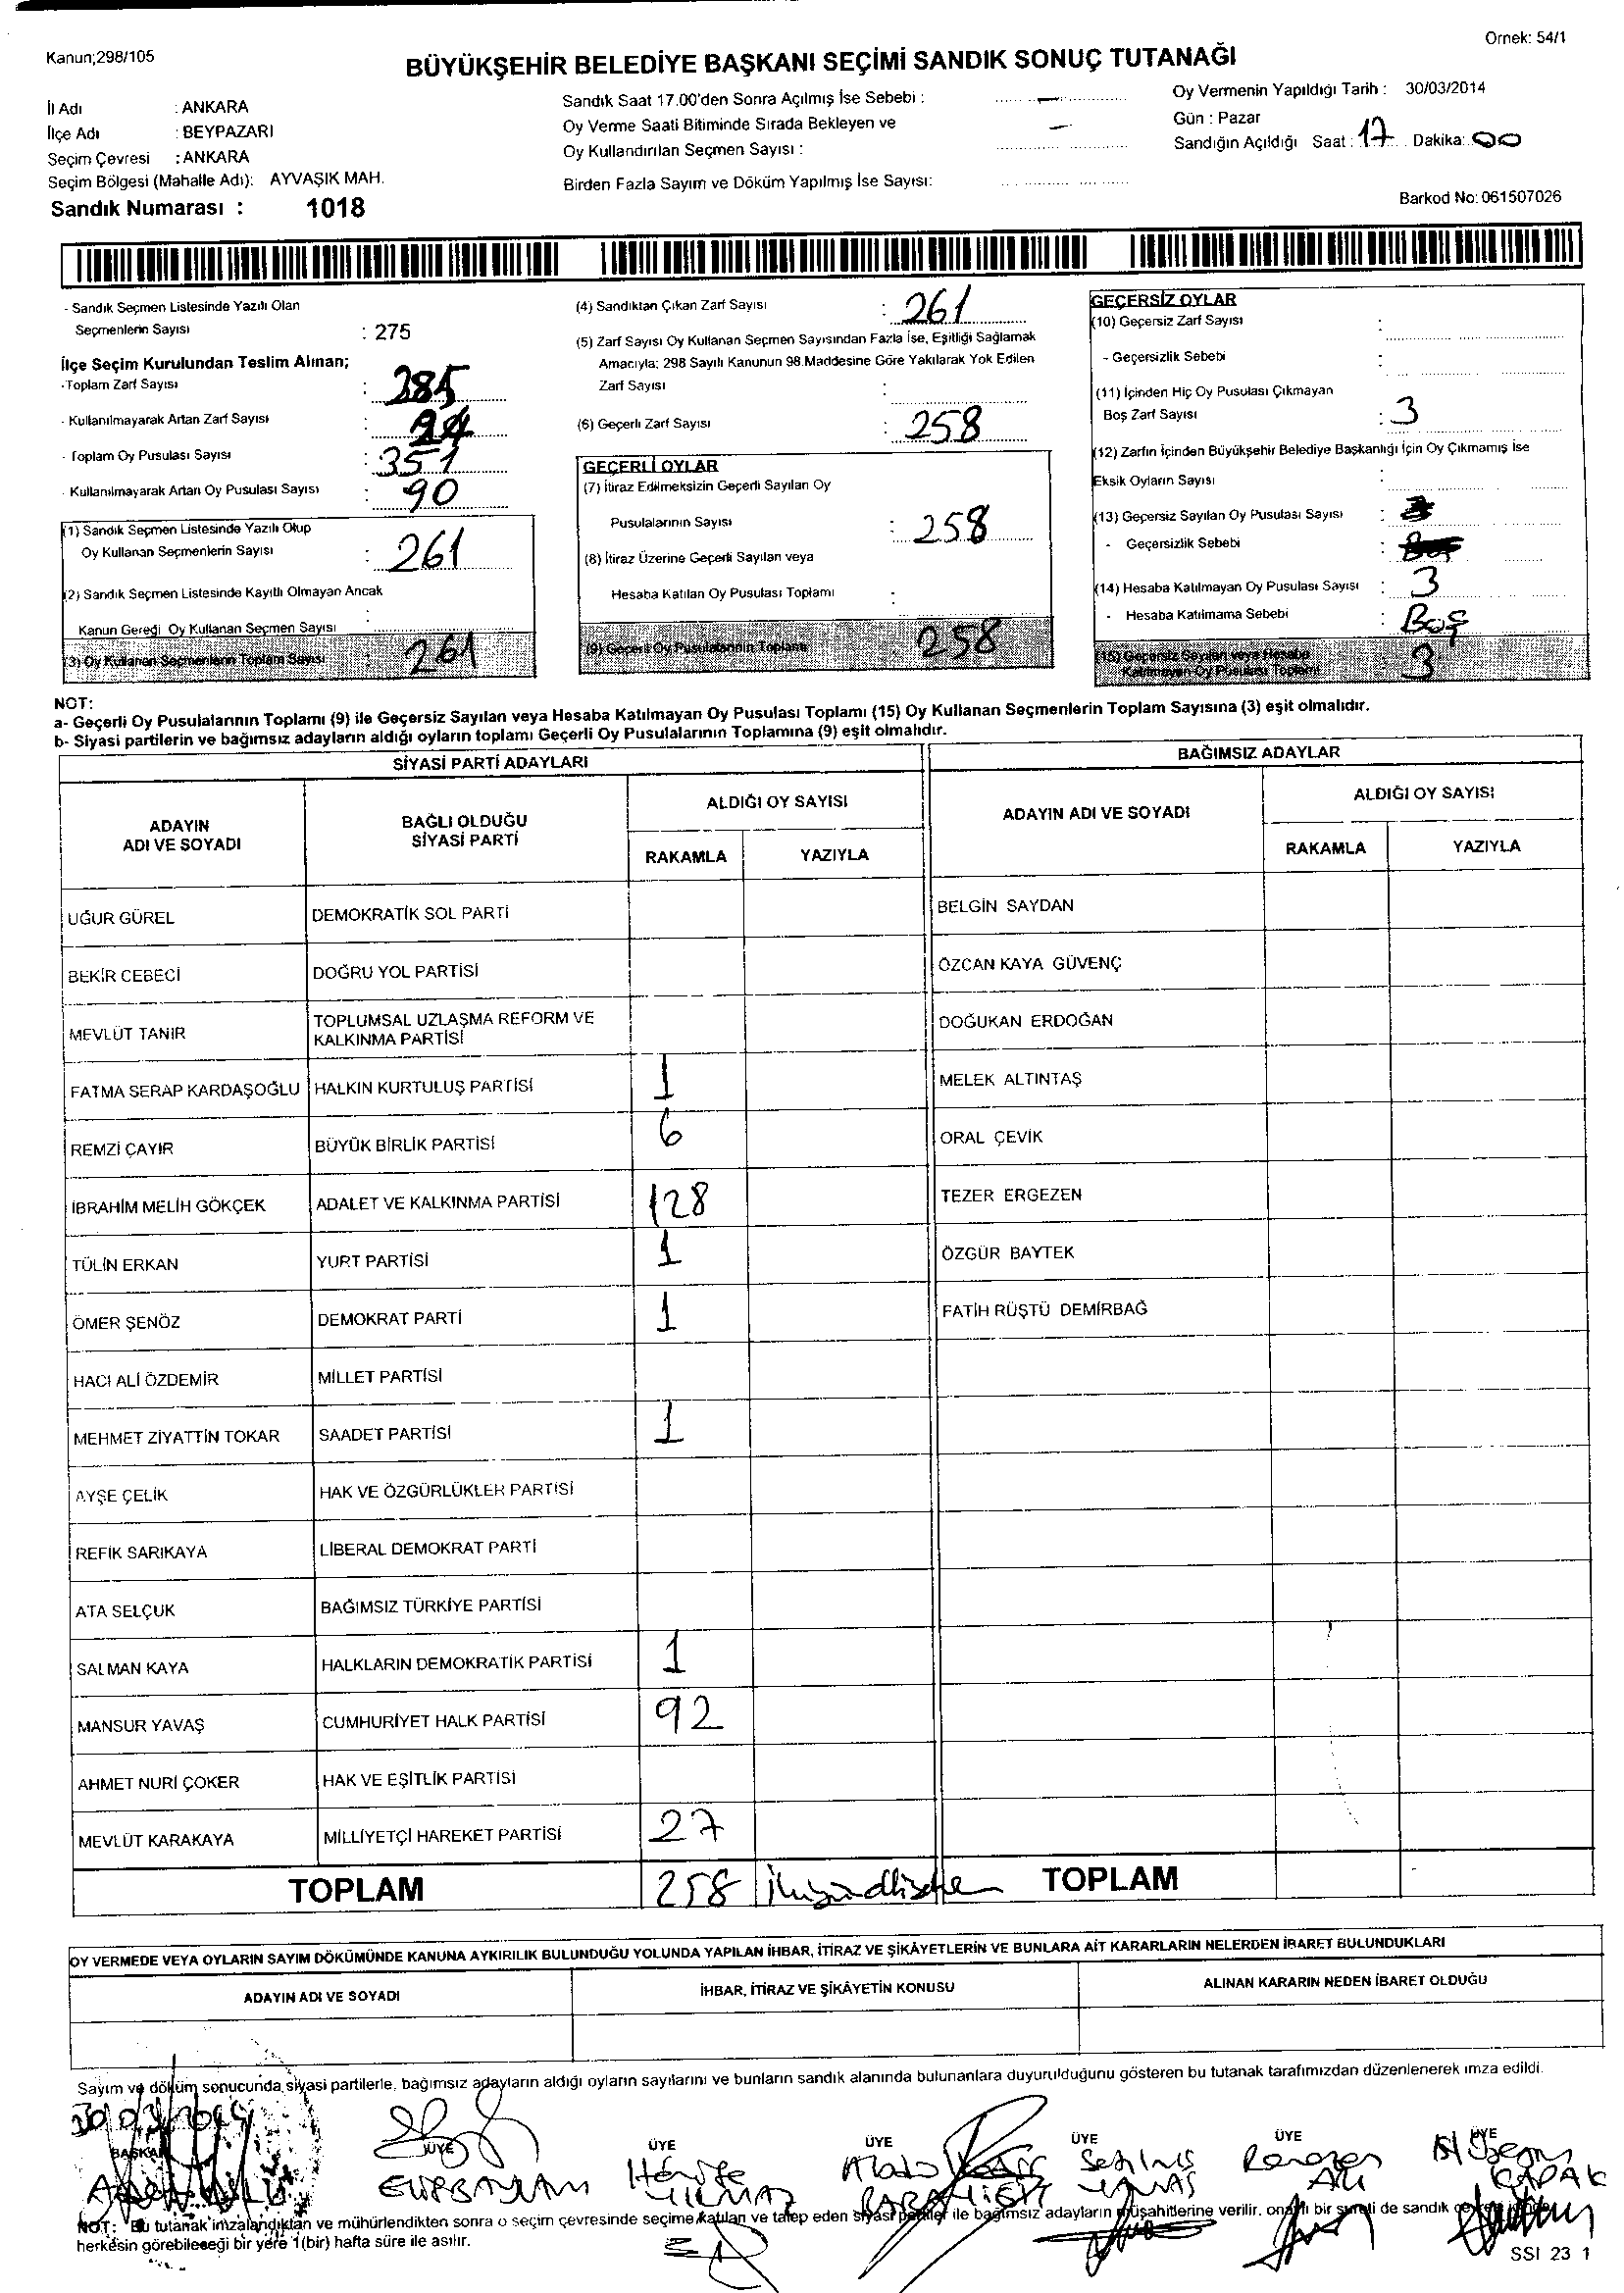 Kanun;298/105
Ornek: 54/1
BÜYÜKŞEHİR BELEDİYE BAŞKANI SEÇİMİ SANDIK SONUÇ TUTANAĞI
İl Adı : ANKARA
İlçe Adı : BEYPAZARI
Seçim Çevresi : ANKARA
Seçim Bölgesi (Mahalle Adı): AYVAŞIK MAH.
Sandık Numarası : 1018
Sandık Saat 17.00'den Sonra Açılmış İse Sebebi :
Oy Verme Saati Bitiminde Sırada Bekleyen ve
Oy Kullandırılan Seçmen Sayısı :
Birden Fazla Sayım ve Döküm Yapılmış İse Sayısı:
Oy Vermenin Yapıldığı Tarih : 30/03/2014
Gün : Pazar
Sandığın Açıldığı Saat : 17 Dakika: 00
Barkod No: 061507026
- Sandık Seçmen Listesinde Yazılı Olan
Seçmenlerin Sayısı : 275
İlçe Seçim Kurulundan Teslim Alınan;
-Toplam Zarf Sayısı : 285
- Kullanılmayarak Artan Zarf Sayısı : 24
- Toplam Oy Pusulası Sayısı : 351
- Kullanılmayarak Artan Oy Pusulası Sayısı : 90
(1) Sandık Seçmen Listesinde Yazılı Olup
Oy Kullanan Seçmenlerin Sayısı : 261
(2) Sandık Seçmen Listesinde Kayıtlı Olmayan Ancak
Kanun Gereği Oy Kullanan Seçmen Sayısı :
(3) Oy Kullanan Seçmenlerin Toplam Sayısı : 261
(4) Sandıktan Çıkan Zarf Sayısı : 261
(5) Zarf Sayısı Oy Kullanan Seçmen Sayısından Fazla İse, Eşitliği Sağlamak
Amacıyla; 298 Sayılı Kanunun 98.Maddesine Göre Yakılarak Yok Edilen
Zarf Sayısı :
(6) Geçerli Zarf Sayısı : 258
GEÇERLİ OYLAR
(7) İtiraz Edilmeksizin Geçerli Sayılan Oy
Pusulalarının Sayısı : 258
(8) İtiraz Üzerine Geçerli Sayılan veya
Hesaba Katılan Oy Pusulası Toplamı :
(9) Geçerli Oy Pusulalarının Toplamı 258
GEÇERSİZ OYLAR
(10) Geçersiz Zarf Sayısı :
- Geçersizlik Sebebi :
(11) İçinden Hiç Oy Pusulası Çıkmayan
Boş Zarf Sayısı : 3
(12) Zarfın İçinden Büyükşehir Belediye Başkanlığı İçin Oy Çıkmamış İse
Eksik Oyların Sayısı :
(13) Geçersiz Sayılan Oy Pusulası Sayısı :
- Geçersizlik Sebebi :
(14) Hesaba Katılmayan Oy Pusulası Sayısı : 3
- Hesaba Katılmama Sebebi : Boş
(15) Geçersiz Sayılan veya Hesaba
Katılmayan Oy Pusulası Toplamı 3
NOT:
a- Geçerli Oy Pusulalarının Toplamı (9) ile Geçersiz Sayılan veya Hesaba Katılmayan Oy Pusulası Toplamı (15) Oy Kullanan Seçmenlerin Toplam Sayısına (3) eşit olmalıdır.
b- Siyasi partilerin ve bağımsız adayların aldığı oyların toplamı Geçerli Oy Pusulalarının Toplamına (9) eşit olmalıdır.
SİYASİ PARTİ ADAYLARI
ADAYIN ADI VE SOYADI
BAĞLI OLDUĞU SİYASİ PARTİ
ALDIĞI OY SAYISI
RAKAMLA YAZIYLA
UĞUR GÜREL DEMOKRATİK SOL PARTİ
BEKİR CEBECİ DOĞRU YOL PARTİSİ
MEVLÜT TANIR TOPLUMSAL UZLAŞMA REFORM VE
KALKINMA PARTİSİ
FATMA SERAP KARDAŞOĞLU HALKIN KURTULUŞ PARTİSİ 1
REMZİ ÇAYIR BÜYÜK BİRLİK PARTİSİ 6
İBRAHİM MELİH GÖKÇEK ADALET VE KALKINMA PARTİSİ 128
TÜLİN ERKAN YURT PARTİSİ 1
ÖMER ŞENÖZ DEMOKRAT PARTİ 1
HACI ALİ ÖZDEMİR MİLLET PARTİSİ
MEHMET ZİYATTİN TOKAR SAADET PARTİSİ 1
AYŞE ÇELİK HAK VE ÖZGÜRLÜKLER PARTİSİ
REFİK SARIKAYA LİBERAL DEMOKRAT PARTİ
ATA SELÇUK BAĞIMSIZ TÜRKİYE PARTİSİ
SALMAN KAYA HALKLARIN DEMOKRATİK PARTİSİ 1
MANSUR YAVAŞ CUMHURİYET HALK PARTİSİ 92
AHMET NURİ ÇOKER HAK VE EŞİTLİK PARTİSİ
MEVLÜT KARAKAYA MİLLİYETÇİ HAREKET PARTİSİ 27
TOPLAM 258
BAĞIMSIZ ADAYLAR
ADAYIN ADI VE SOYADI
ALDIĞI OY SAYISI
RAKAMLA YAZIYLA
BELGİN SAYDAN
ÖZCAN KAYA GÜVENÇ
DOĞUKAN ERDOĞAN
MELEK ALTINTAŞ
ORAL ÇEVİK
TEZER ERGEZEN
ÖZGÜR BAYTEK
FATİH RÜŞTÜ DEMİRBAĞ
TOPLAM
OY VERMEDE VEYA OYLARIN SAYIM DÖKÜMÜNDE KANUNA AYKIRILIK BULUNDUĞU YOLUNDA YAPILAN İHBAR, İTİRAZ VE ŞİKÂYETLERİN VE BUNLARA AİT KARARLARIN NELERDEN İBARET BULUNDUKLARI
ADAYIN ADI VE SOYADI
İHBAR, İTİRAZ VE ŞİKÂYETİN KONUSU
ALINAN KARARIN NEDEN İBARET OLDUĞU
Sayım ve döküm sonucunda siyasi partilerle, bağımsız adayların aldığı oyların sayılarını ve bunların sandık alanında bulunanlara duyurulduğunu gösteren bu tutanak tarafımızdan düzenlenerek imza edildi.
BAŞKAN ÜYE ÜYE ÜYE ÜYE ÜYE ÜYE
YILMAZ
NOT: Bu tutanak imzalandıktan ve mühürlendikten sonra o seçim çevresinde seçime katılan ve talep eden siyasi partiler ile bağımsız adayların müşahitlerine verilir, onaylı bir sureti de sandık
herkesin görebileceği bir yere 1(bir) hafta süre ile asılır.
SSI 23 1